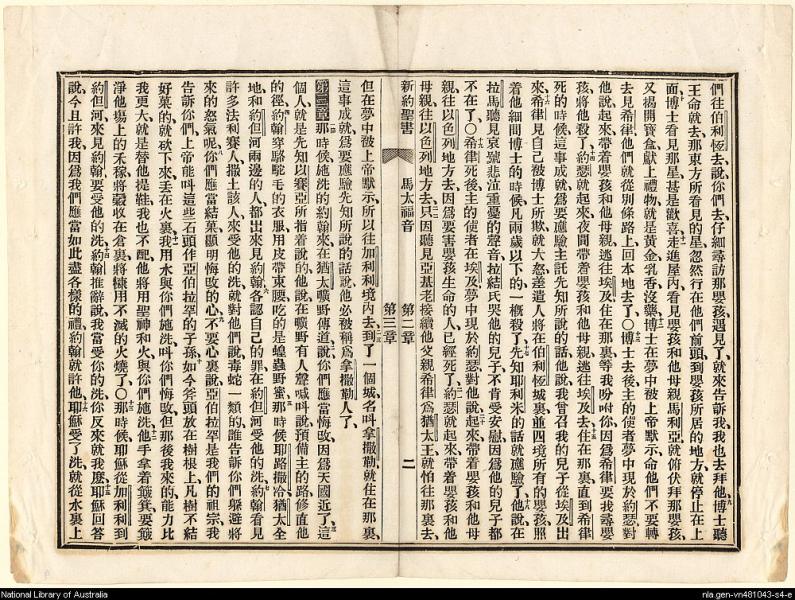 們往伯利恆去說你們去仔細尋訪那嬰孩遇見了就來告訴我我也去拜他博士聽
王命就去那東方所看見的星忽然行在他們前頭到嬰孩所居的地方就停止在上
面博士看見那星甚是歡喜走進屋內看見嬰孩和他母親馬利亞就俯伏拜那嬰孩
又揭開寶盒獻上禮物就是黃金乳香沒藥博士在夢中被上帝默示命他們不要轉
去見希律他們就從別條路上回本地去了〇博士去後主的使者夢中現於約瑟對
他說起來帶着嬰孩和他母親逃往埃及住在那裏等我吩咐你因爲希律要我尋嬰
孩將他殺了約瑟就起來夜間帶着嬰孩和他母親逃往埃及去住在那裏直到希律
死的時候這事成就爲要應驗主託先知所說的話他說我曾召我的兒子從埃及出
來希律見自己被博士所欺就大怒差遣人將在伯利恆城裏並四境所有的嬰孩照
着他細問博士的時候凡兩歲以下的一概殺了先知耶利米的話就應驗了他說在
拉馬聽見哀號悲泣重憂的聲音拉結氏哭他的兒子不肯受安慰因爲他的兒子都
不在了〇希律死後主的使者在埃及夢中現於約瑟對他說起來帶着嬰孩和他母
親往以色列地方去因爲要害嬰孩生命的人已經死了約瑟就起來帶着嬰孩和他
母親往以色列地方去只因聽見亞基老接續他父親希律爲猶太王就怕往那裏去
新約聖書
馬太福音
第二章
第三章
二
但在夢中被上帝默示所以往加利利境內去到了一個城名叫拿撒勒就住在那裏
這事成就爲要應驗先知所說的話說他必被稱爲拿撒勒人了
第三章 那時候施洗的約翰來在猶太曠野傳道說你們應當悔改因爲天國近了這
個人就是先知以賽亞所指着說的他說在曠野有人聲喊叫說預備主的路修直他
的徑約翰穿駱駝毛的衣服用皮帶束腰吃的是蝗蟲野蜜那時候耶路撒冷猶太全
地和約但河兩邊的人都出來見約翰各認自己的罪在約但河受他的洗約翰看見
許多法利賽人撒土該人來受他的洗就對他們說毒蛇一類的誰告訴你們躲避將
來的怒氣呢你們應當結果顯明悔改的心不要心裏說亞伯拉罕是我們的祖宗我
告訴你們上帝能叫這些石頭作亞伯拉罕的子孫如今斧頭放在樹根上凡樹不結
好菓的就砍下來丟在火裏我用水與你們施洗叫你們悔改但那後我來的能力比
我更大就是替他提鞋我也不配他將用聖神和火與你們施洗他手拿着簸箕要簸
淨他場上的禾稼將穀收在倉裏將糠用不滅的火燒了〇那時候耶穌從加利利到
約但河來見約翰要受他的洗約翰推辭說我當受你的洗你反來就我麼耶穌回答
說今且許我因爲我們應當如此盡各樣的禮約翰就許他耶穌受了洗就從水裏上
National Library of Australia
nla.gen-vn481043-s4-e